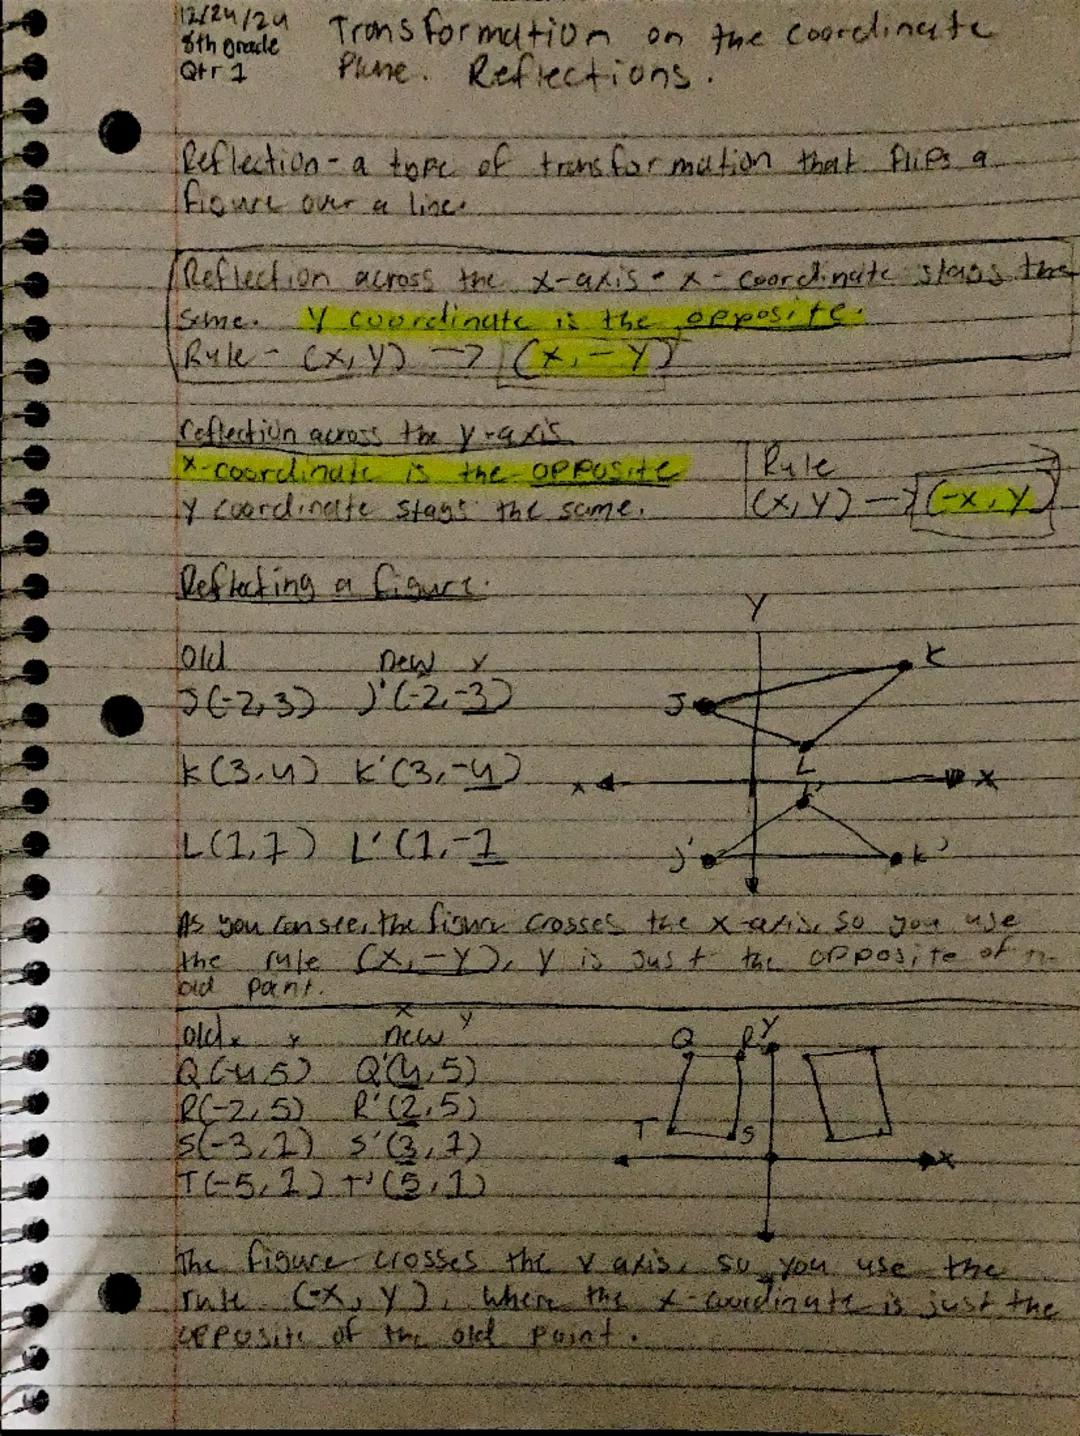 12/24/24
8th grade
Qtr 1
Transformation on the coordinate
Plane. Reflections.
Reflection - a type of transformation that flips a
figure over a line.
Reflection across the x-axis - x-coordinate stays the
same. y coordinate is the opposite.
Rule - (x, y) → (x, -y)
reflection across the y-axis
x-coordinate is the opposite
y coordinate stays the same.
Rule
(x, y) → (-x, y)
Reflecting a figure.
Old new y
J(-2,3) J'(-2,-3)
K(3,4) K'(3,-4)
L(1,1) L'(1,-1
Y
K
J
L
x X
L'
J' K'
As you can see, the figure crosses the x-axis, so you use
the rule (x, -y), y is just the opposite of
old point.
x y
Old x y new
Q(-4,5) Q'(4,5)
R(-2,5) R'(2,5)
S(-3,1) S'(3,1)
T(-5,1) T'(5,1)
Q R Y
T S
X
The figure crosses the y axis, so you use the
rule (-x, y), where the x-coordinate is just the
opposite of the old point.